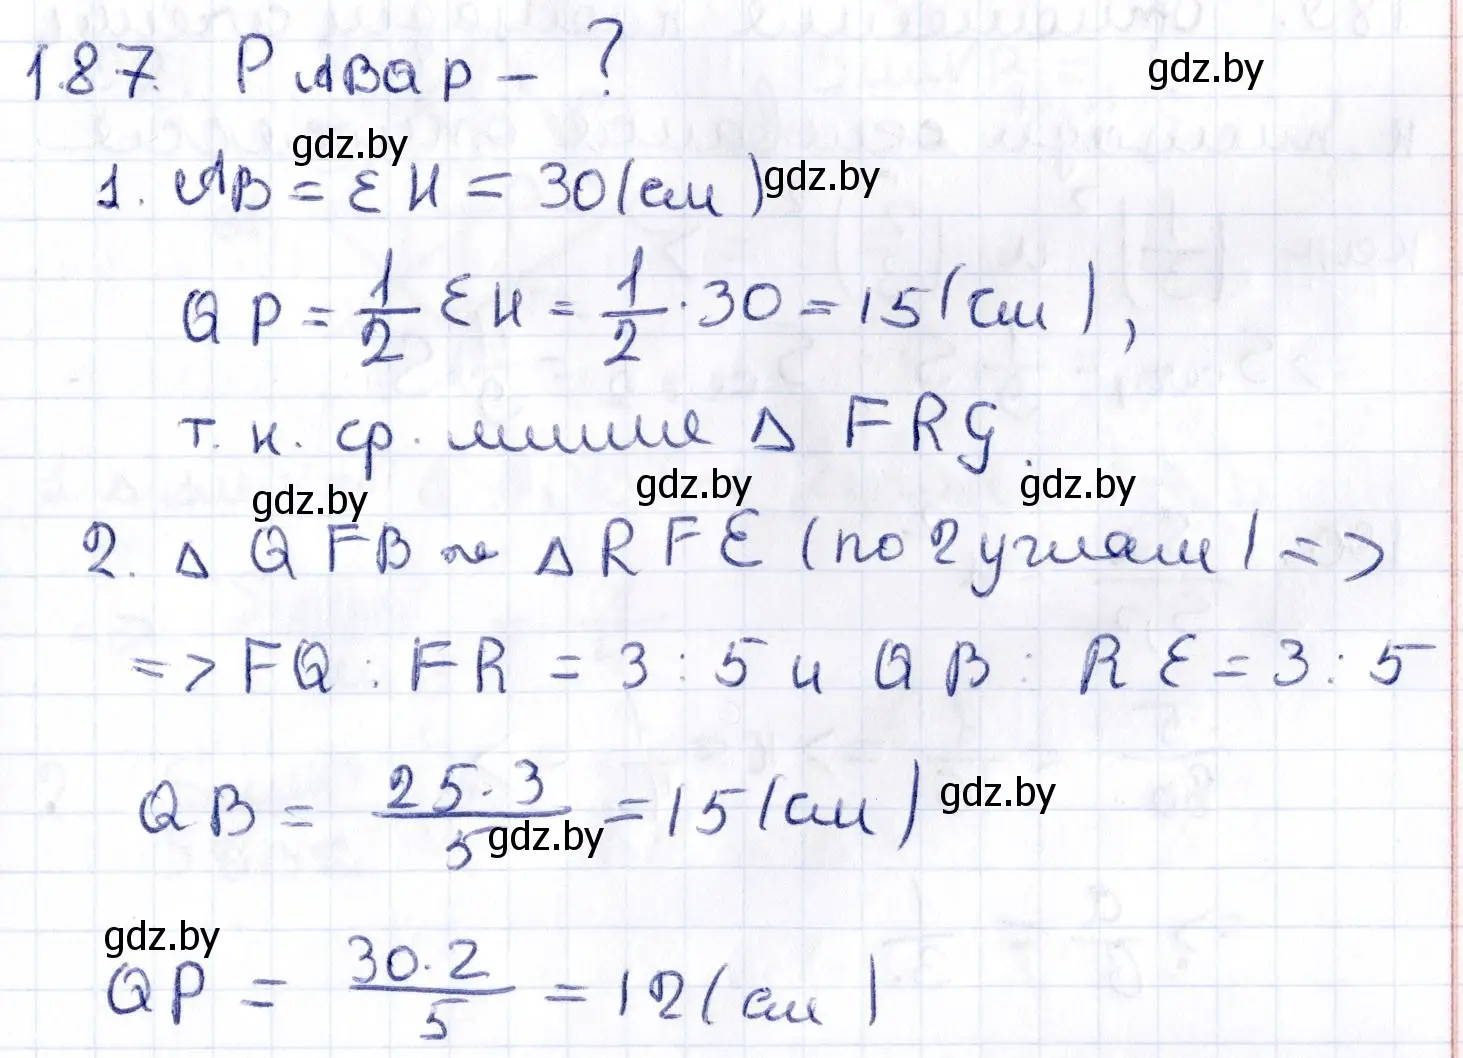 187. P ABQP - ?
gdz.by
gdz.by
1. AB = EH = 30 (см) gdz.by
QP = 1/2 EH = 1/2 · 30 = 15 (см),
т. к. ср. линия Δ FRG.
gdz.by gdz.by gdz.by
2. Δ QFB ~ Δ RFE (по 2 углам) =>
=> FQ : FR = 3 : 5 и QB : RE = 3 : 5
QB = 25·3/5 = 15 (см) gdz.by
gdz.by
gdz.by
QP = 30·2/5 = 12 (см)